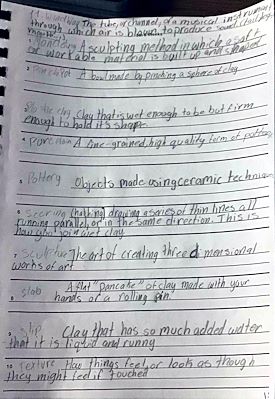 The tube, or channel, of a musical instrument
through which air is blown to produce sound.
A sculpting method in which a soft
or workable material is built up and
A bowl made by pinching a sphere of clay
Clay that is wet enough to be but firm
enough to hold its shape.
A fine-grained, high quality form of pottery
Pottery Objects made using ceramic techniques
drawing a series of thin lines all
running parallel, or in the same direction. This is
how you join wet clay
7 sculpture The art of creating three dimensional
works of art
8 slab A flat "pancake" of clay made with your
hands or a rolling pin.
9 slip Clay that has so much added water
that it is liquid and runny
10 Texture How things feel, or look as though
they might feel if touched